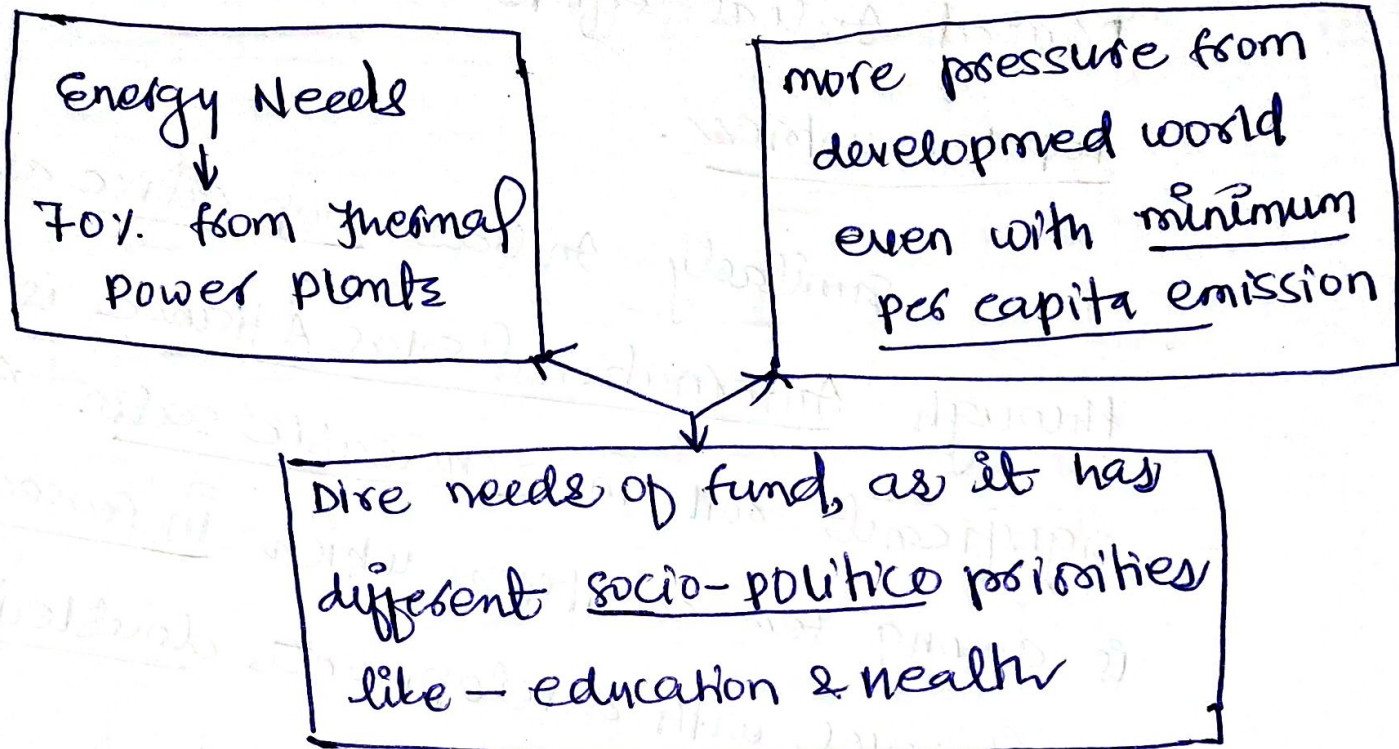 Energy Needs
↓
70%. from thermal
power plants
more pressure from
developmed world
even with minimum
per capita emission
Dire needs of fund, as it has
different socio-politico priorities
like – education & health